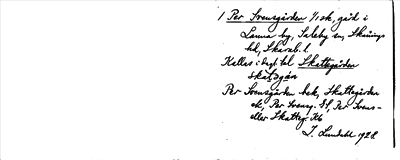 1 Per Svensgården 1/1 sk, gård i
Lanna by, Saleby sn, Skånings
hd, Skarab. l.
Kallas i dagl. tal Skattegården
Per Svensgården bok, Skattegården
ok, Per Svensg. Jf, Per Svens-
eller Skatteg. Kb
J. Lundahl 1928